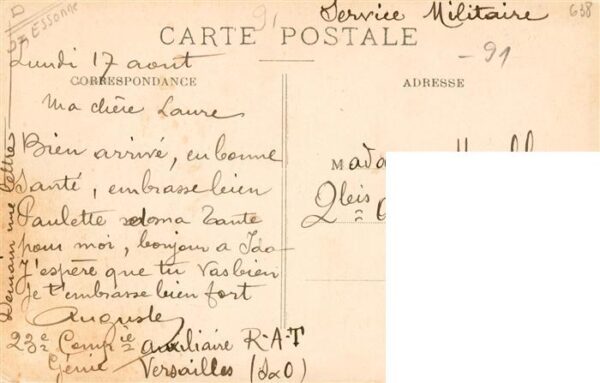 D
91 Essonne
91
Service Militaire
G38
CARTE POSTALE
- 91
Lundi 17 aout
CORRESPONDANCE
ADRESSE
Ma chère Laure
Bien arrivé, en bonne
Santé, embrasse bien
Paulette et ma Tante
pour moi, bonjour a Ida
J'espère que tu vas bien
Je t'embrasse bien fort
Auguste
23e Compie auxiliaire R-A-T
Génie Versailles (S&O)
Demain une lettre
Mada
2 bis